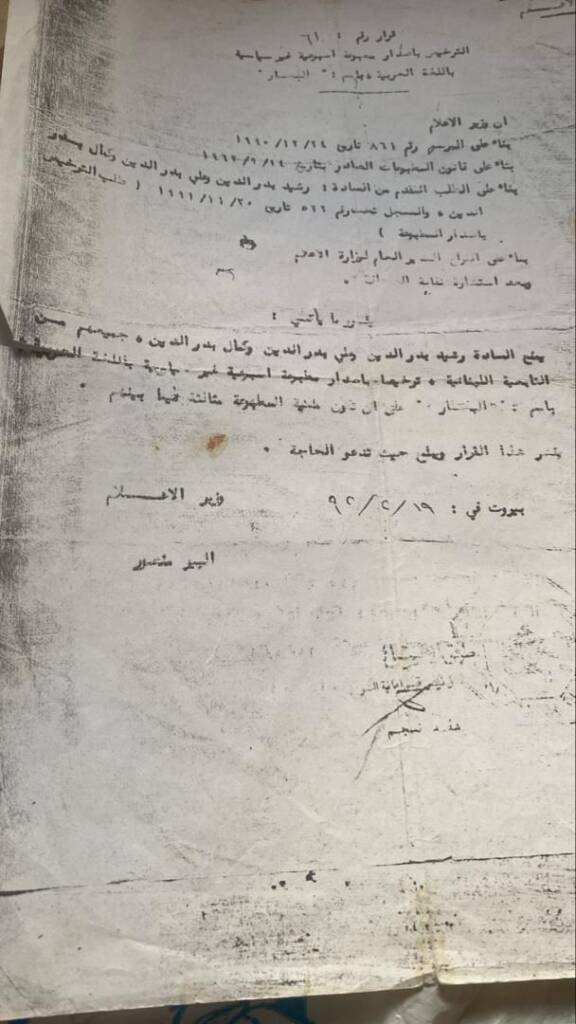 قرار رقم : ٦١
الترخيص باصدار مطبوعة اسبوعية غير سياسية
باللغة العربية باسم : "
ان وزير الاعلام
بناء على المرسوم رقم ٨٦١ تاريخ ١٩٩٠/١٢/٢٤
بناء على قانون المطبوعات الصادر بتاريخ
بناء على الطلب المقدم من السادة : رشيد بدر الدين وعلي بدر الدين وكمال بدر
الدين والمسجل تحت رقم ٥٦٦ تاريخ ١٩٩١/١١/٢٠ ( طلب الترخيص
باصدار المطبوعة )
بناء على اقتراح المدير العام لوزارة الاعلام
وبعد استشارة نقابة
يقرر ما يأتي :
يمنح السادة رشيد بدر الدين وعلي بدر الدين وكمال بدر الدين ، جميعهم من
التابعية اللبنانية ، ترخيصا باصدار مطبوعة اسبوعية غير سياسية باللغة العربية
باسم : " على ان تكون ملكية المطبوعة مثالثة فيما بينهم .
ينشر هذا القرار ويبلغ حيث تدعو الحاجة .
بيروت في : ٩٢/٢/١٩
وزير الاعلام
البير منصور